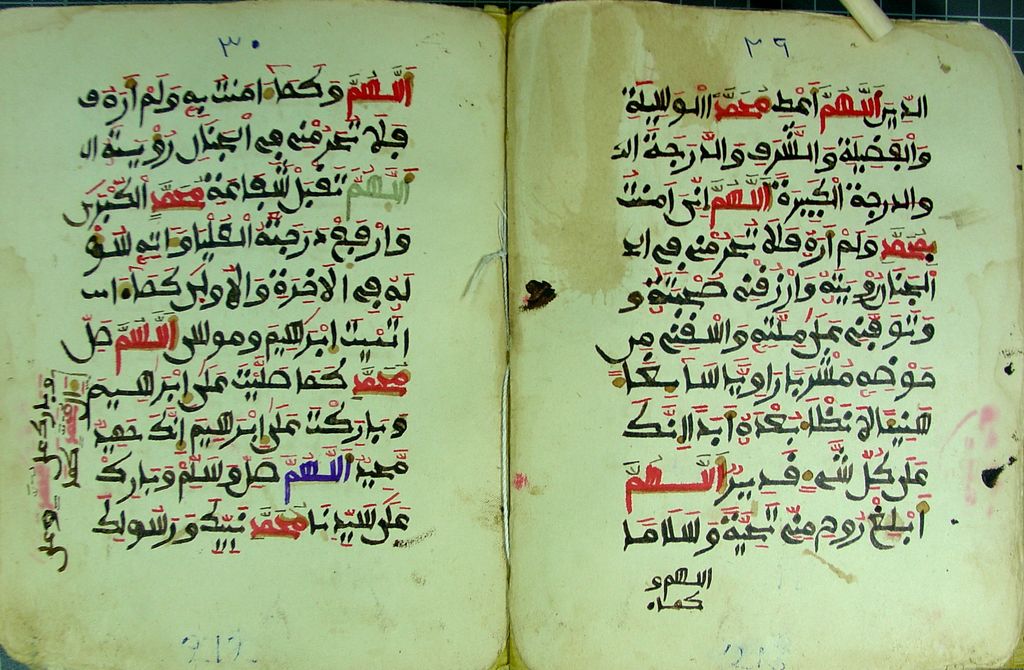 ٢٩
الدين اللهم اعط محمد الوسيلة
والفضيلة والشرف والدرجة الد
والدرجة الكبيرة اللهم اني امنت
بمحمد ولم اره فلا تحرمني في ال
الجنان رويته وارزقني صحبته و
وتوفني على ملته واسقني من
حوضه مشربا رويا سايغا
هنيا لا نظما بعده ابدا انك
على كل شيء قدير اللهم
ابلغ روح مني تحية وسلاما
اللهم و
كما
٣٠
اللهم وكما امنت به ولم اره و
فلا تحرمني في الجنان رويته ال
اللهم تقبل شفاعة محمد الكبرى
وارفع درجته العليا واته سو
له في الاخرة والاولى كما ا
اتيت ابرهيم وموسى اللهم صل
محمد كما صليت على ابرهيم
وباركت على ابرهيم انك حميد
مجيد اللهم صل وسلم وبارك
على سيدنا محمد نبيك ورسولك
وبارك على
محمد وعلى
كما